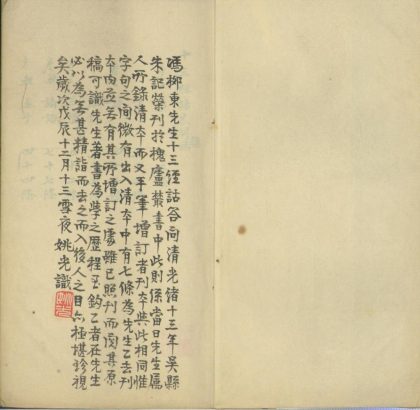 馮柳東先生十三經詁答問清光緒十三年吳縣
朱記榮刊於槐廬叢書中此則係當日先生屬
人所錄清本而又手筆增訂者刊本與此相同惟
字句之間微有出入清本中有七條為先生乙去刊
本內並無有其所增訂之處雖已照刊而閱其原
稿可識先生著書為學之歷程至鈎乙者在先生
必以為無甚精詣而去之而入後人之目亦極堪珍視
矣歲次戊辰十二月十三雪夜姚光識